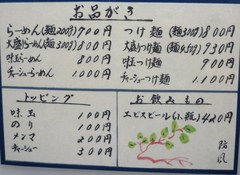 お品がき
らーめん(麺200g)700円
大盛らーめん(麺300g)800円
味玉らーめん 800円
チャーシューらーめん 1000円
つけ麺(麺300g)830円
大盛つけ麺 930円
味玉つけ麺 900円
チャーシューつけ麺 1100円
トッピング
味玉 100円
のり 100円
メンマ 200円
チャーシュー 300円
お飲みもの
エビスビール(小瓶)420円